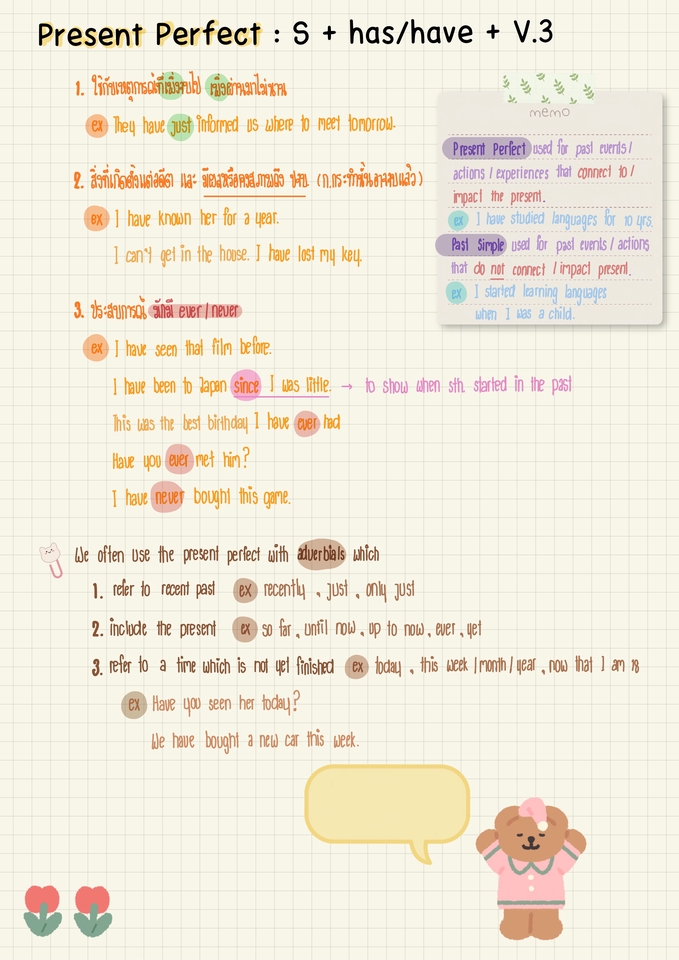 Present Perfect : S + has/have + V.3
1. ใช้กับเหตุการณ์ที่เพิ่งจบไป เพิ่งผ่านมาไม่นาน
ex They have just informed us where to meet tomorrow.
2. สิ่งที่เกิดตั้งแต่อดีต และ มีผลหรือคงสภาพถึง ปจบ. (ก.กระทำนั้นอาจจบแล้ว)
ex I have known her for a year.
I can't get in the house. I have lost my key.
3. ประสบการณ์ มักมี ever / never
ex I have seen that film before.
I have been to Japan since I was little. → to show when sth. started in the past
This was the best birthday I have ever had
Have you ever met him?
I have never bought this game.
memo
Present Perfect used for past events /
actions / experiences that connect to /
impact the present.
ex I have studied languages for 10 yrs.
Past Simple used for past events / actions
that do not connect / impact present.
ex I started learning languages
when I was a child.
We often use the present perfect with adverbials which
1. refer to recent past ex recently , just , only just
2. include the present ex so far , until now , up to now , ever , yet
3. refer to a time which is not yet finished ex today , this week / month / year , now that I am 18
ex Have you seen her today?
We have bought a new car this week.